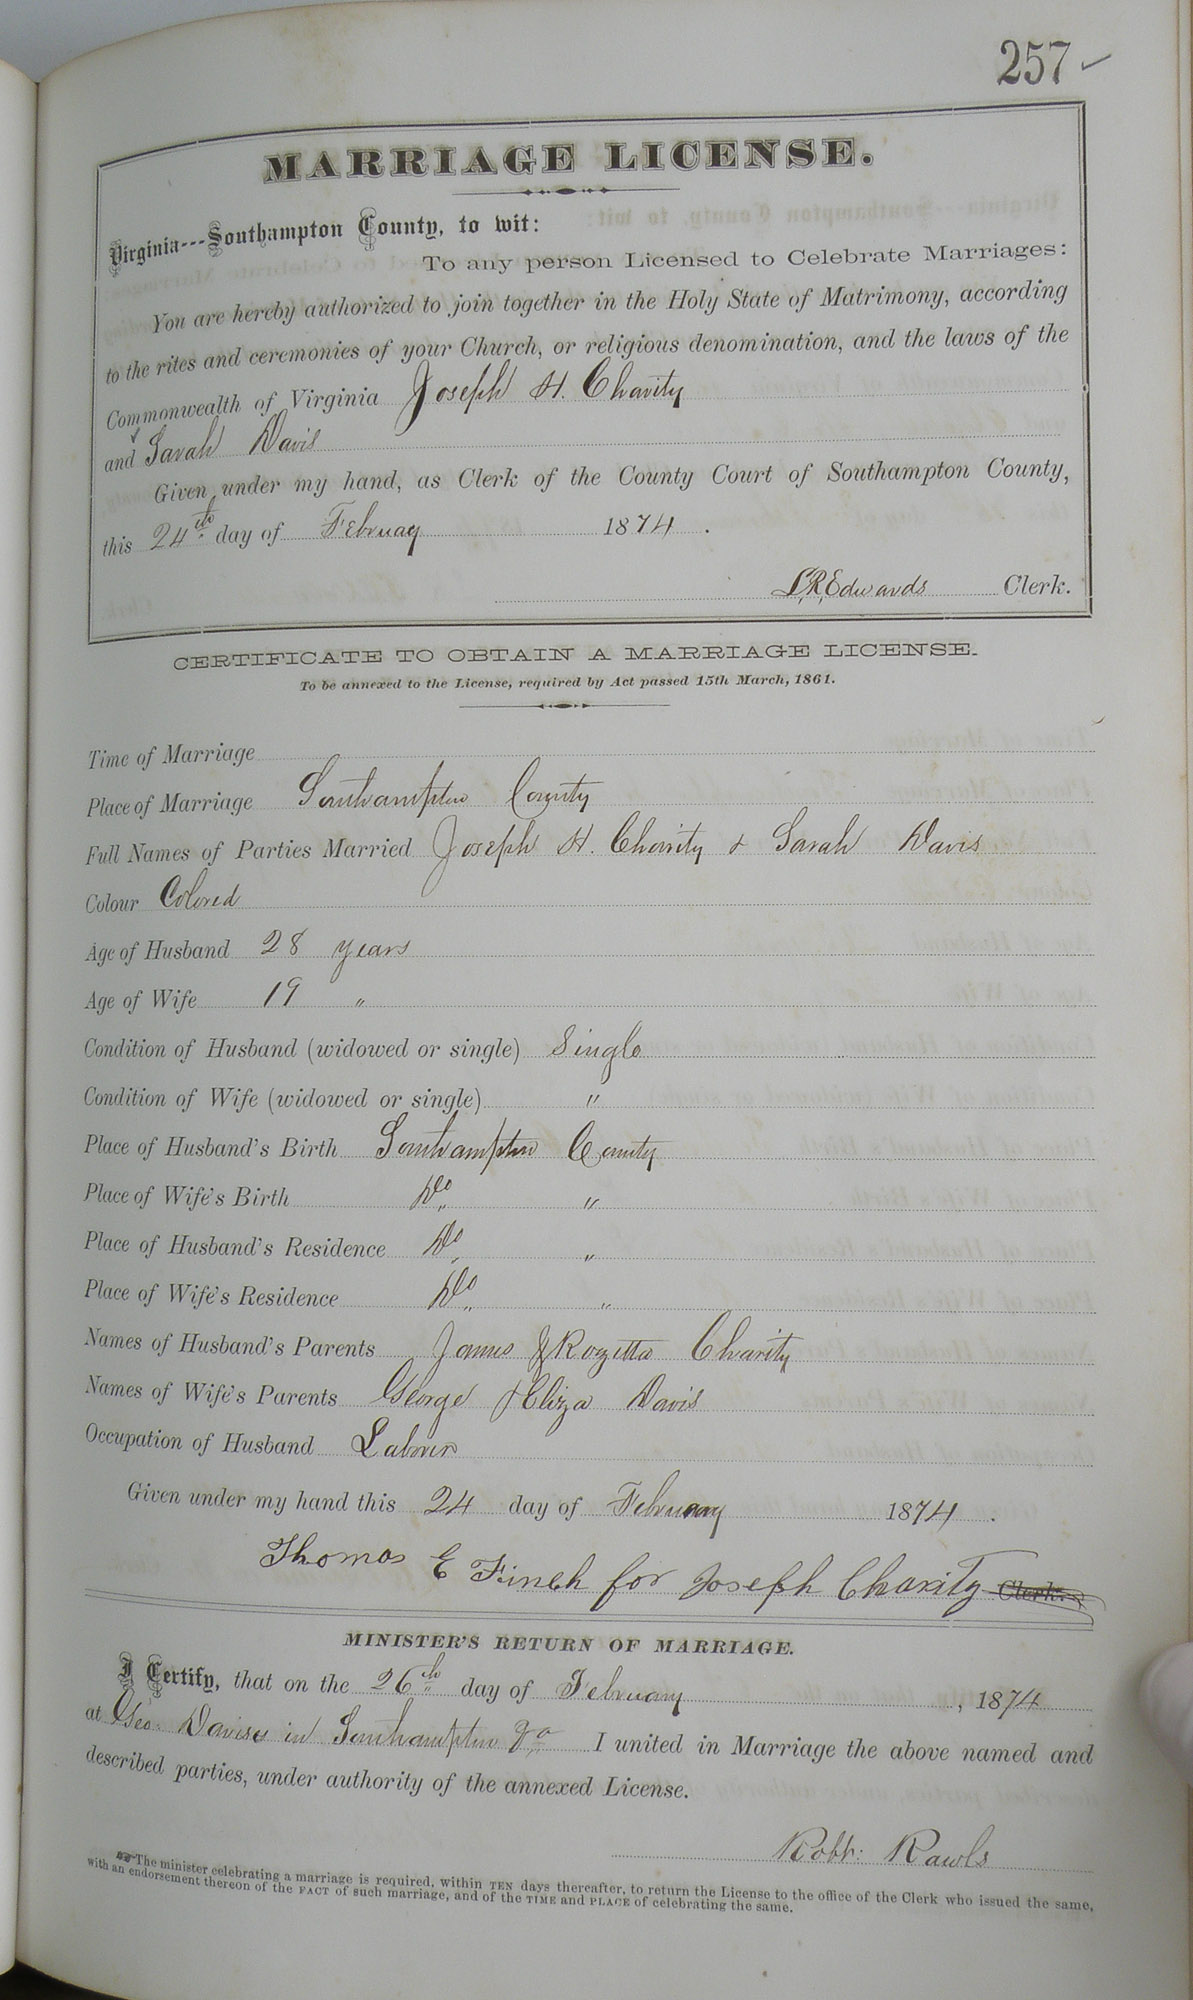 257
MARRIAGE LICENSE.
Virginia---Southampton County, to wit:
To any person Licensed to Celebrate Marriages:
You are hereby authorized to join together in the Holy State of Matrimony, according
to the rites and ceremonies of your Church, or religious denomination, and the laws of the
Commonwealth of Virginia Joseph H. Charity
and Sarah Davis
Given under my hand, as Clerk of the County Court of Southampton County,
this 24th day of February 1874.
L.R. Edwards Clerk.
CERTIFICATE TO OBTAIN A MARRIAGE LICENSE.
To be annexed to the License, required by Act passed 15th March, 1861.
Time of Marriage
Place of Marriage Southampton County
Full Names of Parties Married Joseph H. Charity & Sarah Davis
Colour Colored
Age of Husband 28 years
Age of Wife 19 "
Condition of Husband (widowed or single) Single
Condition of Wife (widowed or single) "
Place of Husband's Birth Southampton County
Place of Wife's Birth Do "
Place of Husband's Residence Do "
Place of Wife's Residence Do "
Names of Husband's Parents James & Rozetta Charity
Names of Wife's Parents George & Eliza Davis
Occupation of Husband Laborer
Given under my hand this 24 day of February 1874.
Thomas E Finch for Joseph Charity Clerk.
MINISTER'S RETURN OF MARRIAGE.
I Certify, that on the 26th day of February, 1874
at Geo. Davises in Southampton Co I united in Marriage the above named and
described parties, under authority of the annexed License.
Robt: Rawls
☞The minister celebrating a marriage is required, within TEN days thereafter, to return the License to the office of the Clerk who issued the same,
with an endorsement thereon of the FACT of such marriage, and of the TIME and PLACE of celebrating the same.